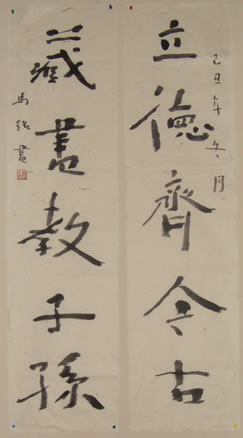 己丑年冬月
立德齊今古
藏書教子孫
馬 書